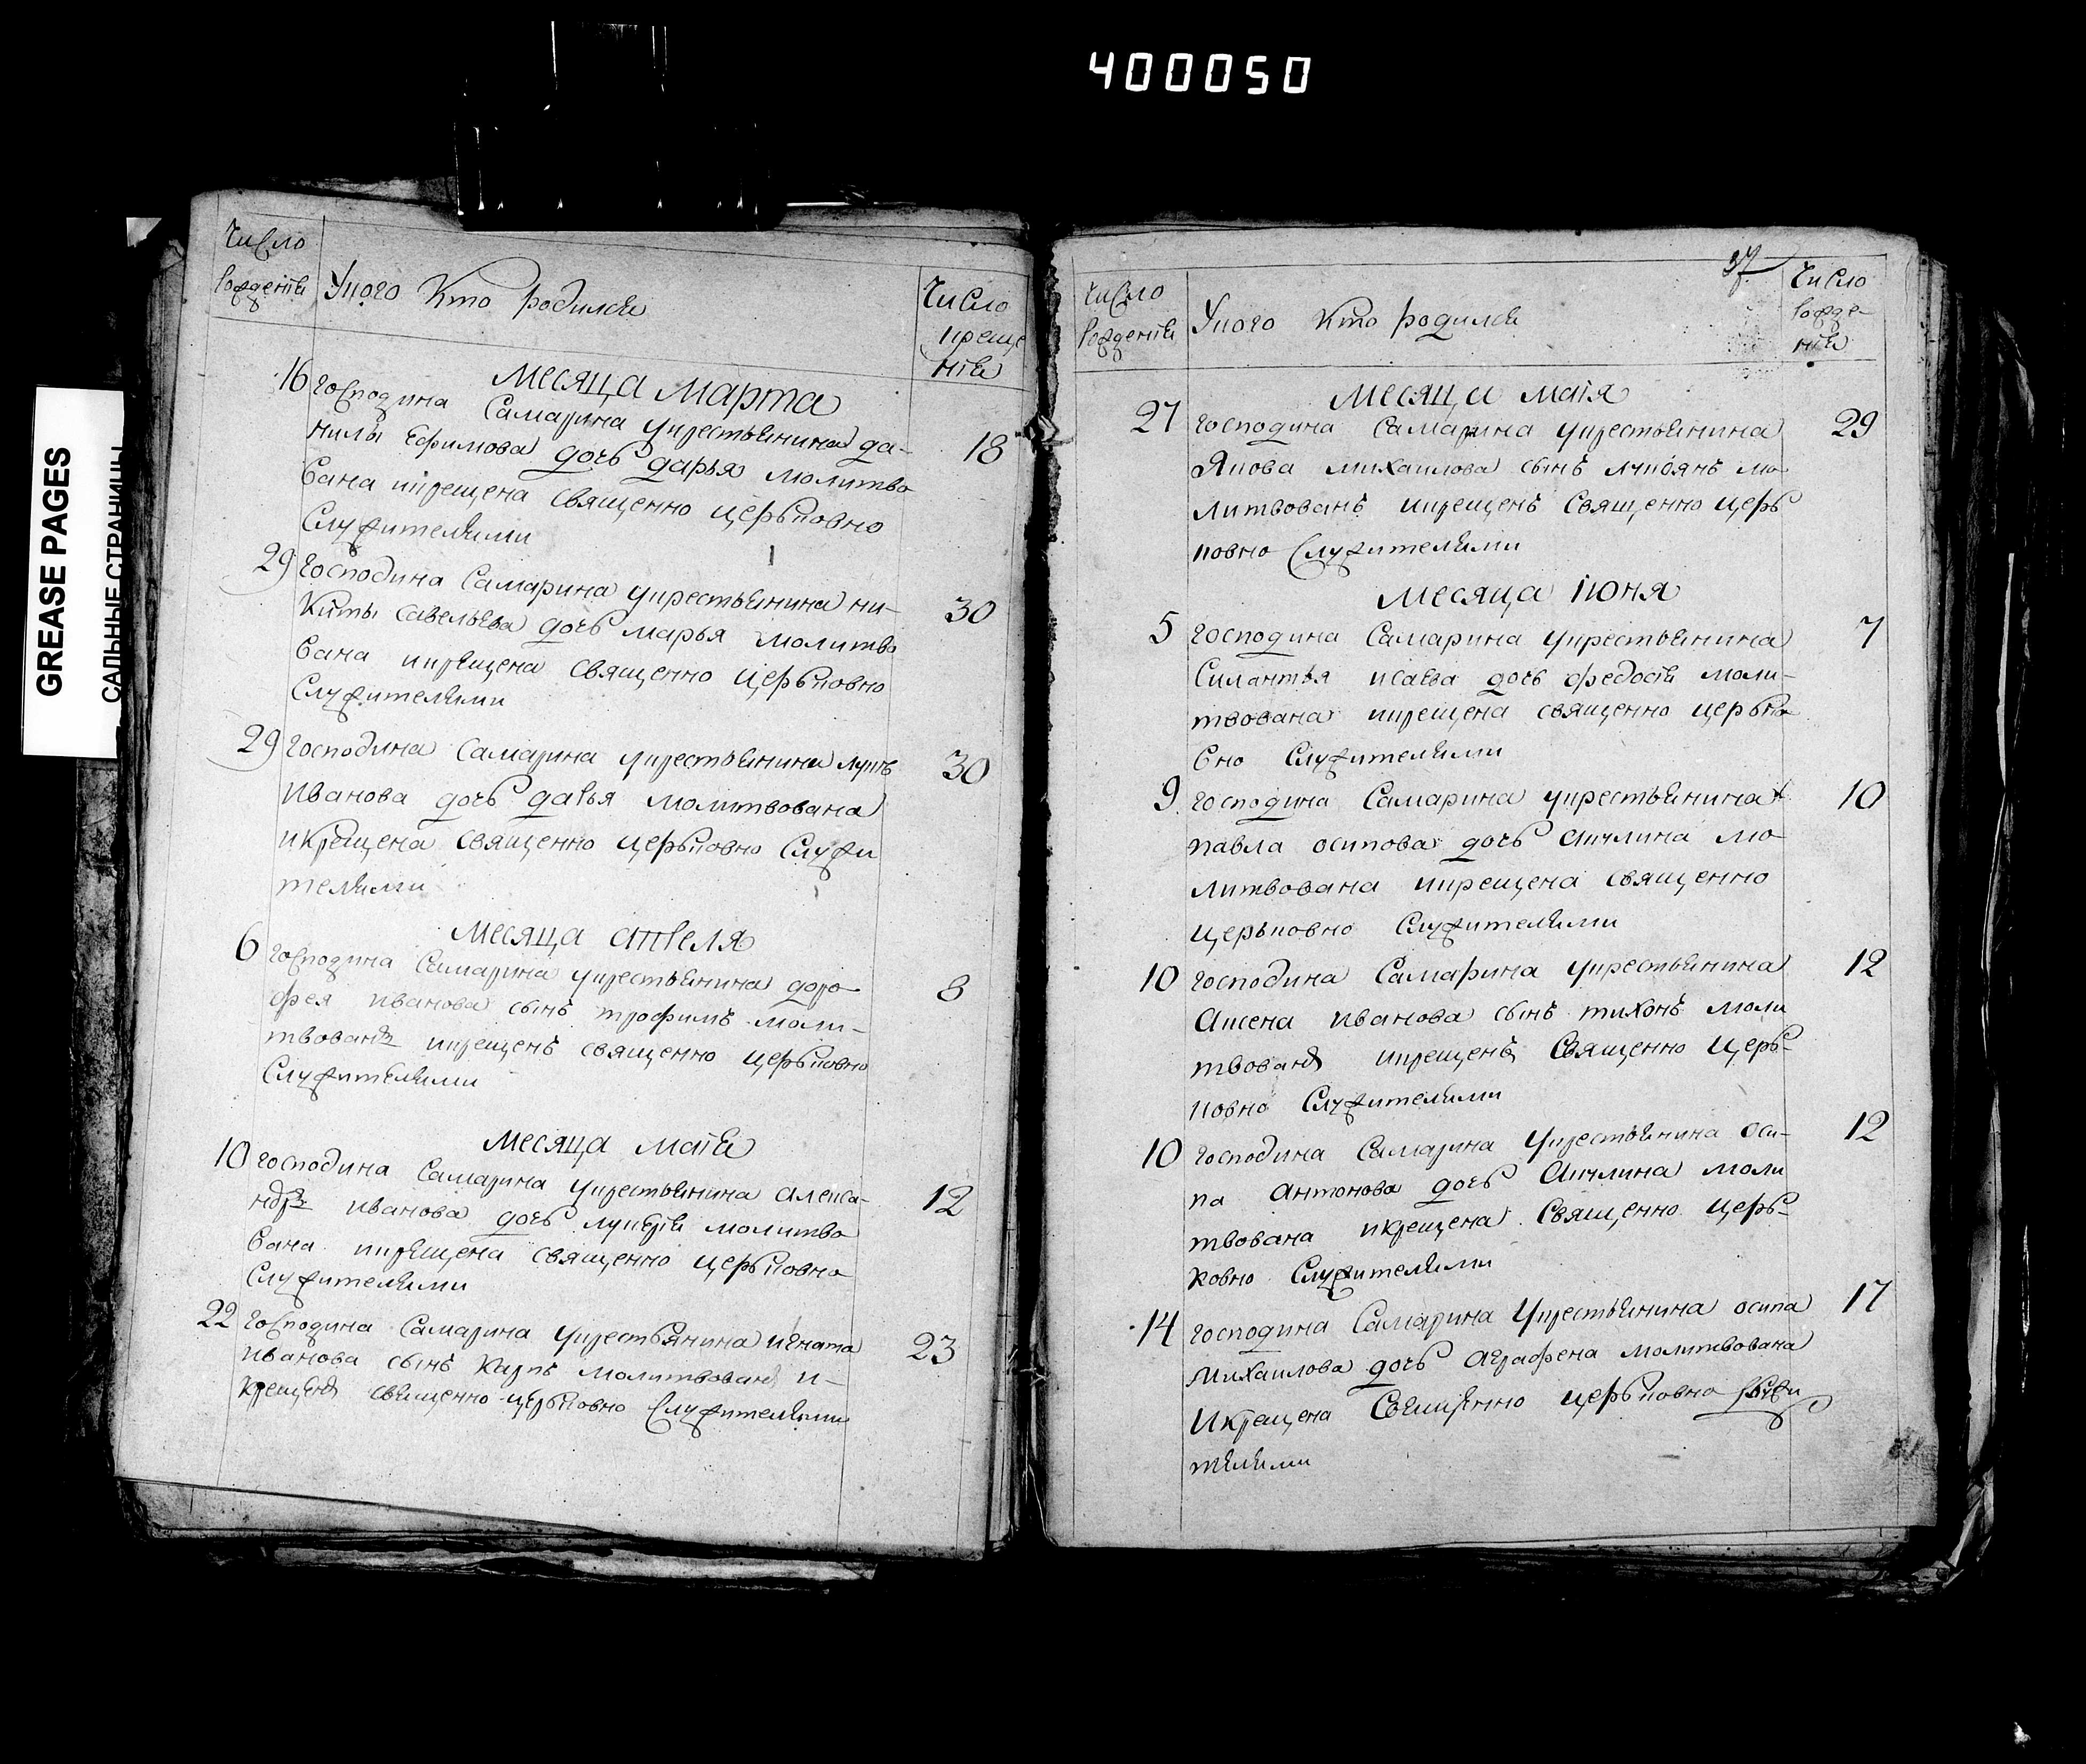 400050
GREASE PAGES
САЛЬНЫЕ СТРАНИЦЫ
Число
рожденія
Укого Кто родился
Число
креще
нія
месяца марта
16 господина Самарина укрестьянина да-
нилы ефимова дочь дарья молитво 18
вана икрещена священно церьковно
Служителями
29 господина Самарина укрестьянина ни-
киты савельева дочь марья молитво 30
вана икрещена священно церьковно
Служителями
29 господина Самарина укрестьянина 30
иванова дочь дарья молитвована
икрещена священно церьковно Служи
телями
месяца апреля
6 господина Самарина укрестьянина доро-
фея иванова сынъ трофимъ моли- 8
твованъ икрещенъ священно церьковно
Служителями
месяца маія
10 господина Самарина укрестьянина алекса-
ндръ иванова дочь лукерія молитво 12
вана икрещена священно церьковно
Служителями
22 господина Самарина укрестьянина игната
иванова сынъ карпъ молитвованъ и- 23
крещенъ священно церьковно Служителями
37
Число
рожденія
Укого кто родился
Число
рожде-
нія
месяца маія
27 господина Самарина укрестьянина 29
Якова михаилова сынъ лукоянъ мо
литвованъ икрещенъ священно церь
ковно Служителями
месяца іюня
5 господина Самарина укрестьянина 7
Силантья исаева дочь федосія моли-
твована икрещена священно церько
вно Служителями
9 господина Самарина укрестьянина 10
павла осипова дочь акилина мо
литвована икрещена священно
церьковно Служителями
10 господина Самарина укрестьянина 12
Аксена иванова сынъ тихонъ моли
твованъ икрещенъ священно церь-
ковно Служителями
10 господина Самарина укрестьянина оси- 12
па антонова дочь Акилина моли
твована икрещена священно церь-
ковно Служителями
14 господина Самарина укрестьянина осипа 17
михаилова дочь аграфена молитвована
икрещена Священно церьковно служи
телями